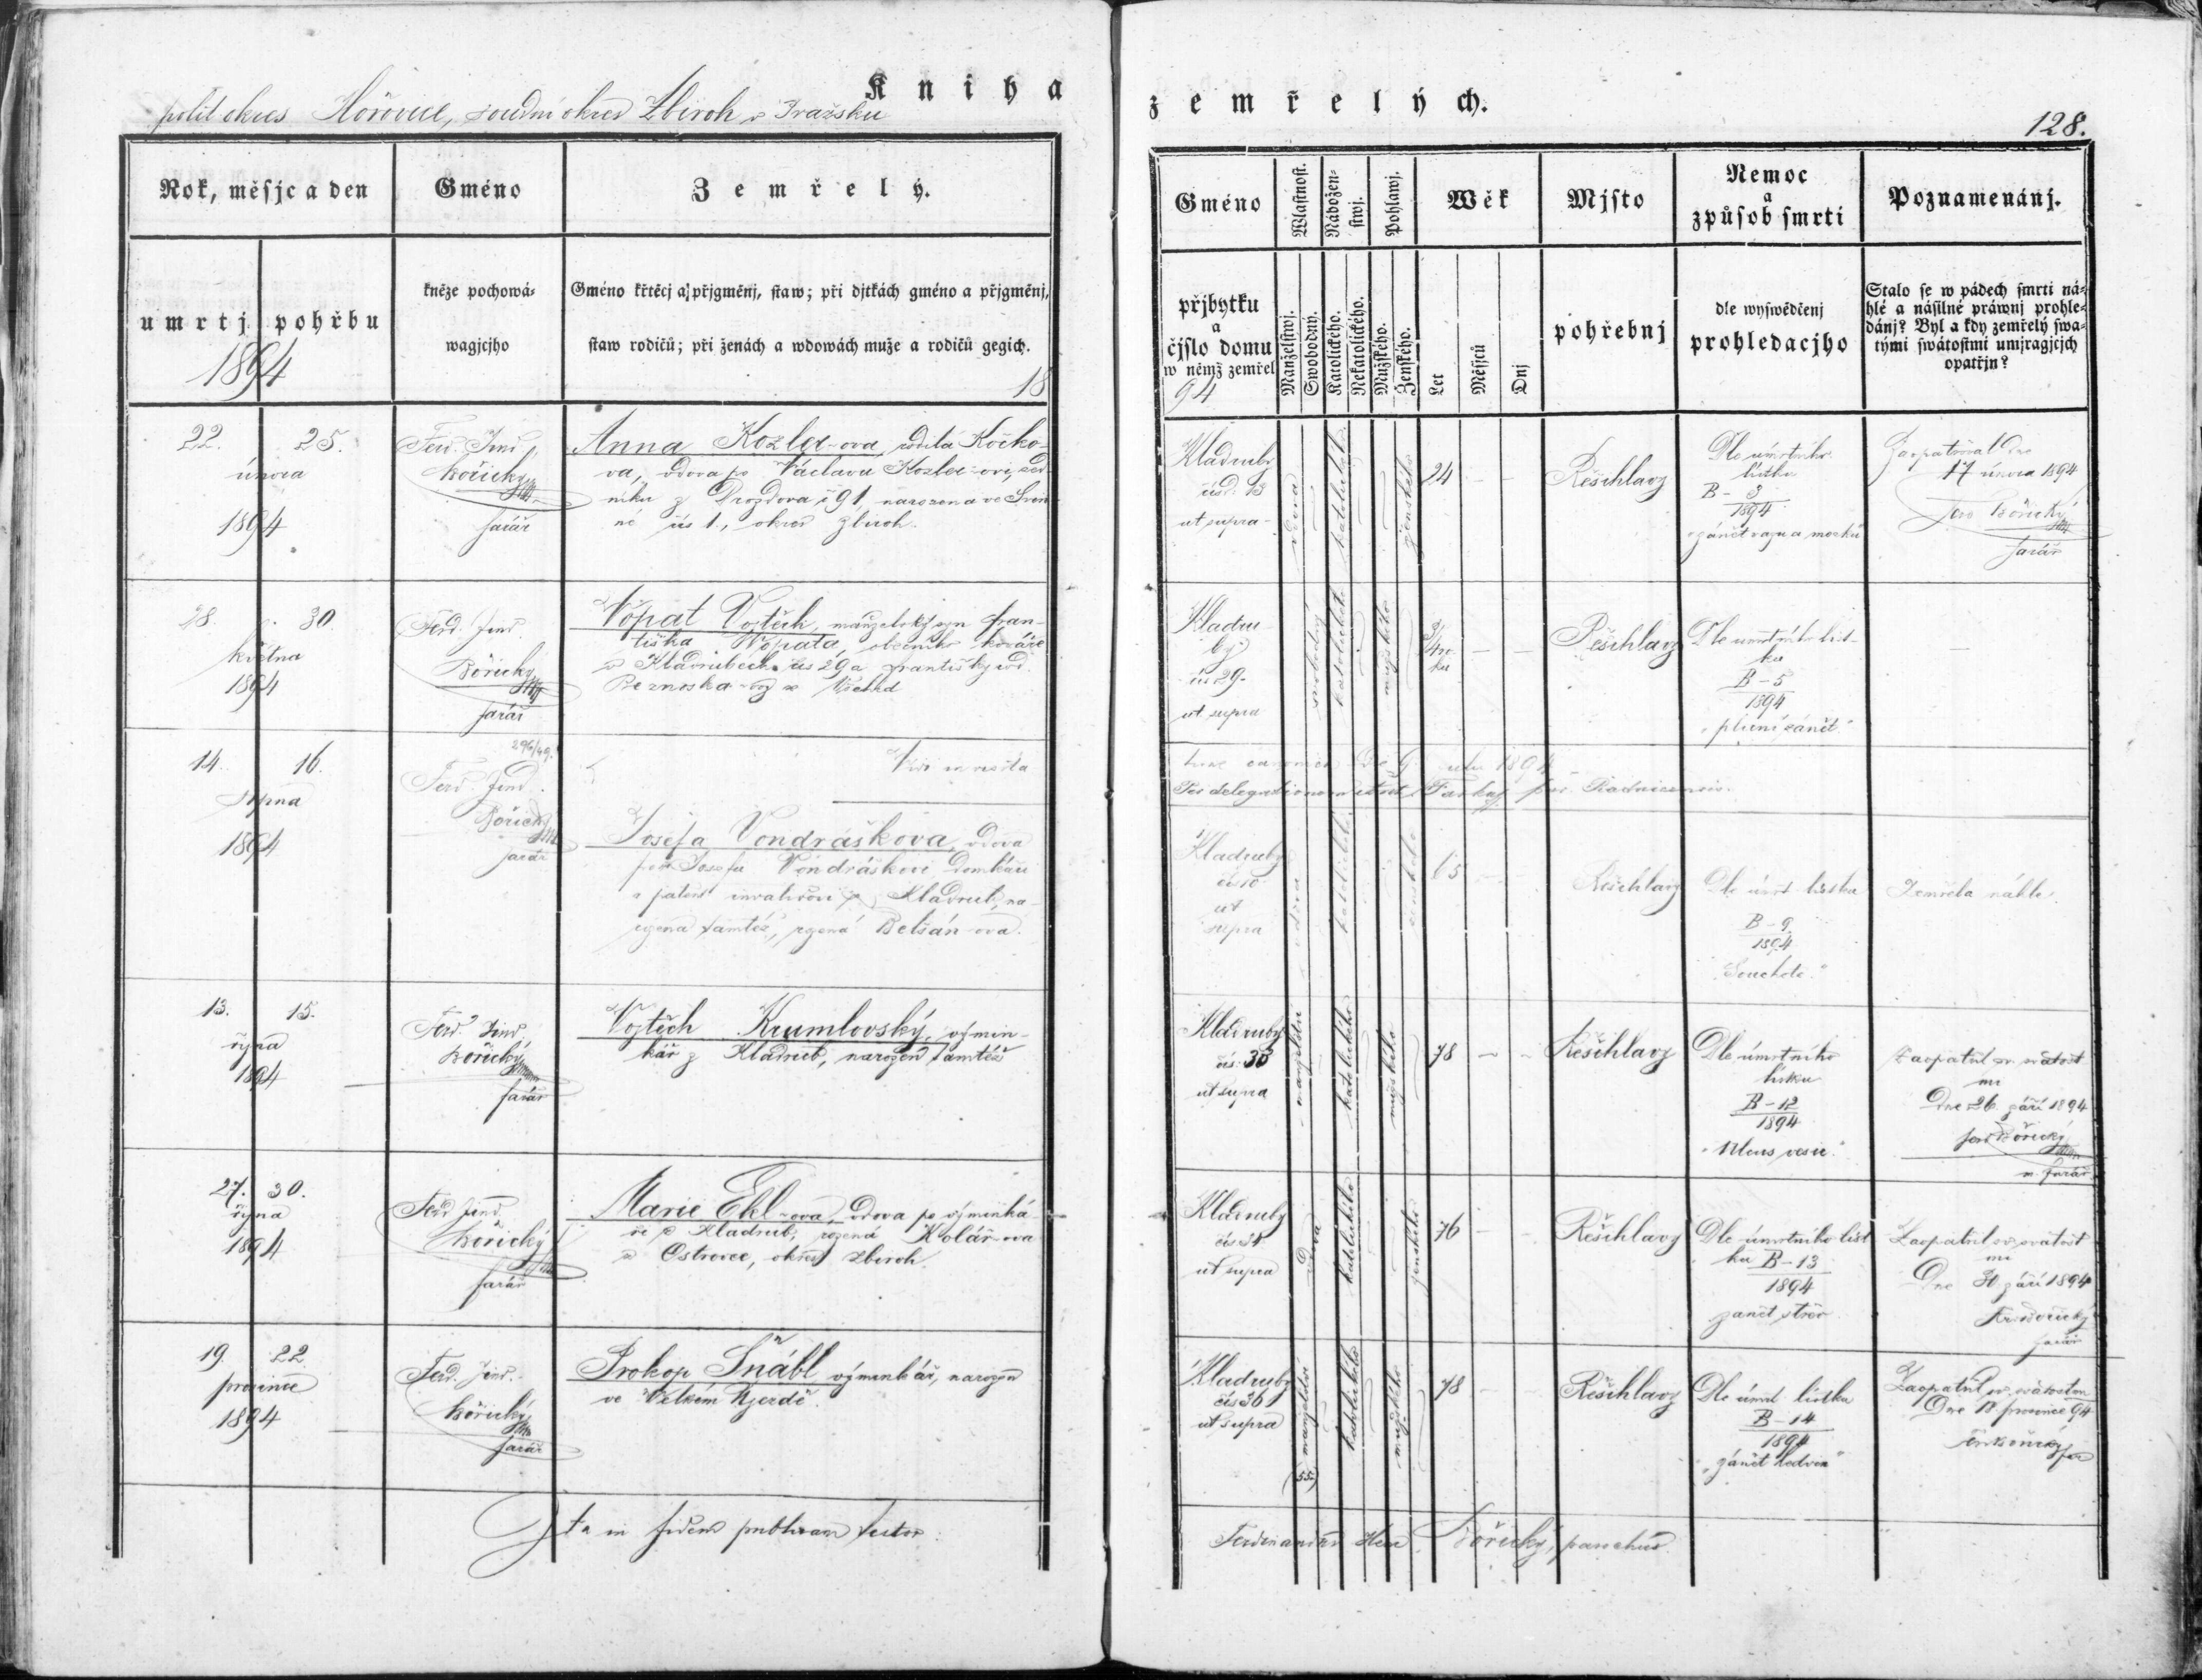 Kniha
polit okres Hořovice, soudní okres Zbiroh v Pražsku
Rok, měsjc a den
Gméno
Zemřelý.
umrtj
pohřbu
1894
kněze pochowá-
wagjcjho
Gméno křtěcj a přjgměnj, staw; při djtkách gméno a přjgměnj,
staw rodičů; při ženách a wdowách muže a rodičů gegich.
18
22. 25.
února
1894
Ferd. Jind.
Bořický
farář
Anna Kozler-ova, rodilá Kočko-
va, vdova po Václavu Kozler-ovi, zed-
níku z Drozdova č 91, narozena ve
čís 1., okres Zbiroh.
28. 30.
května
1894
Ferd. Jind.
Bořický
farář
Wopat Vojtěch, manželský syn Fran-
tiška Wopata, obecního kováře
v Kladrubech čís 29 a Františky rod.
Beznoska-ovy z
14. 16.
srpna
1894
296/49.
Ferd. Jind.
Bořický
farář
Josefa Vondrášková, vdova
po Josefu Vondráškovi, domkáři
a patent. invalidovi z Kladrub, na-
rozená tamtéž, rozená Belšán-ova.
13. 15.
října
1894
Ferd. Jind.
Bořický
farář
Vojtěch Krumlovský, výmin-
kář z Kladrub, narozen tamtéž
27. 30.
října
1894
Ferd. Jind.
Bořický
farář
Marie Ekl-ova, vdova po výminká-
ři z Kladrub, rozená Kolář-ova
z Ostrovce, okres Zbiroh.
19. 22.
prosince
1894
Ferd. Jind.
Bořický
farář
Prokop Šnábl, výminkář, narozen
ve Velkém Újezdě.
Ita in fidem publicam testor:
zemřelých.
128.
Gméno
Wlastnost.
Nábožen-
stwj.
Pohlawj.
Wěk
Mjsto
Nemoc
a
způsob smrti
Poznamenánj.
přjbytku
a
čjslo domu
w němž zemřel
94
Manželstwj.
Swobodny.
Katolického.
Nekatolického.
Mužského.
Ženského.
Let
Měsjců
Dnj
pohřebnj
dle wyswědčenj
prohledacjho
Stalo se w pádech smrti ná-
hlé a násilné práwnj prohle-
dánj? Byl a kdy zemřelý swa-
tými swátostmi umjragjcjch
opatřjn?
Kladruby
čís. 13
ut supra
vdova
katolického
ženského
24 – –
Řešihlavy
Dle úmrtního
lístku
B – 3
1894
zánět mozku
Zaopatřoval dne
17 února 1894
Ferd Bořický
farář
Kladru-
by
čís 29.
ut supra
svobodný
katolického
mužského
3/4 ro-
ku
– –
Řešihlavy
Dle úmrtního líst-
ku
B – 5
1894
„plicní zánět"
–
Kladruby
čís 10
ut
supra
vdova
katolického
ženského
65 – –
Řešihlavy
Dle úmrt lístku
B – 9
1894
„Souchotě."
Zemřela náhle.
Kladruby
čís. 33
ut supra
manželství
katolického
mužského
78 – –
Řešihlavy
Dle úmrtního
lístku
B – 12
1894
Zaopatřil sv. svátost
mi
Dne 26. září 1894
Ferd Bořický
farář
Kladruby
čís 34
ut supra
vdova
katolického
ženského
76 – –
Řešihlavy
Dle úmrtního líst
ku B – 13
1894
zánět střev
Zaopatřil sv. svátost
mi
Dne 30. září 1894
Ferd Bořický
farář
Kladruby
čís 36
ut supra
manželství
(55)
katolického
mužského
78 – –
Řešihlavy
Dle úmrt lístku
B – 14
1894
„zánět ledvin"
Zaopatřil sv. svátostmi
Dne 18. prosince 94
Ferd Bořický
far
Ferdinandus Hen. Bořický, parochus.